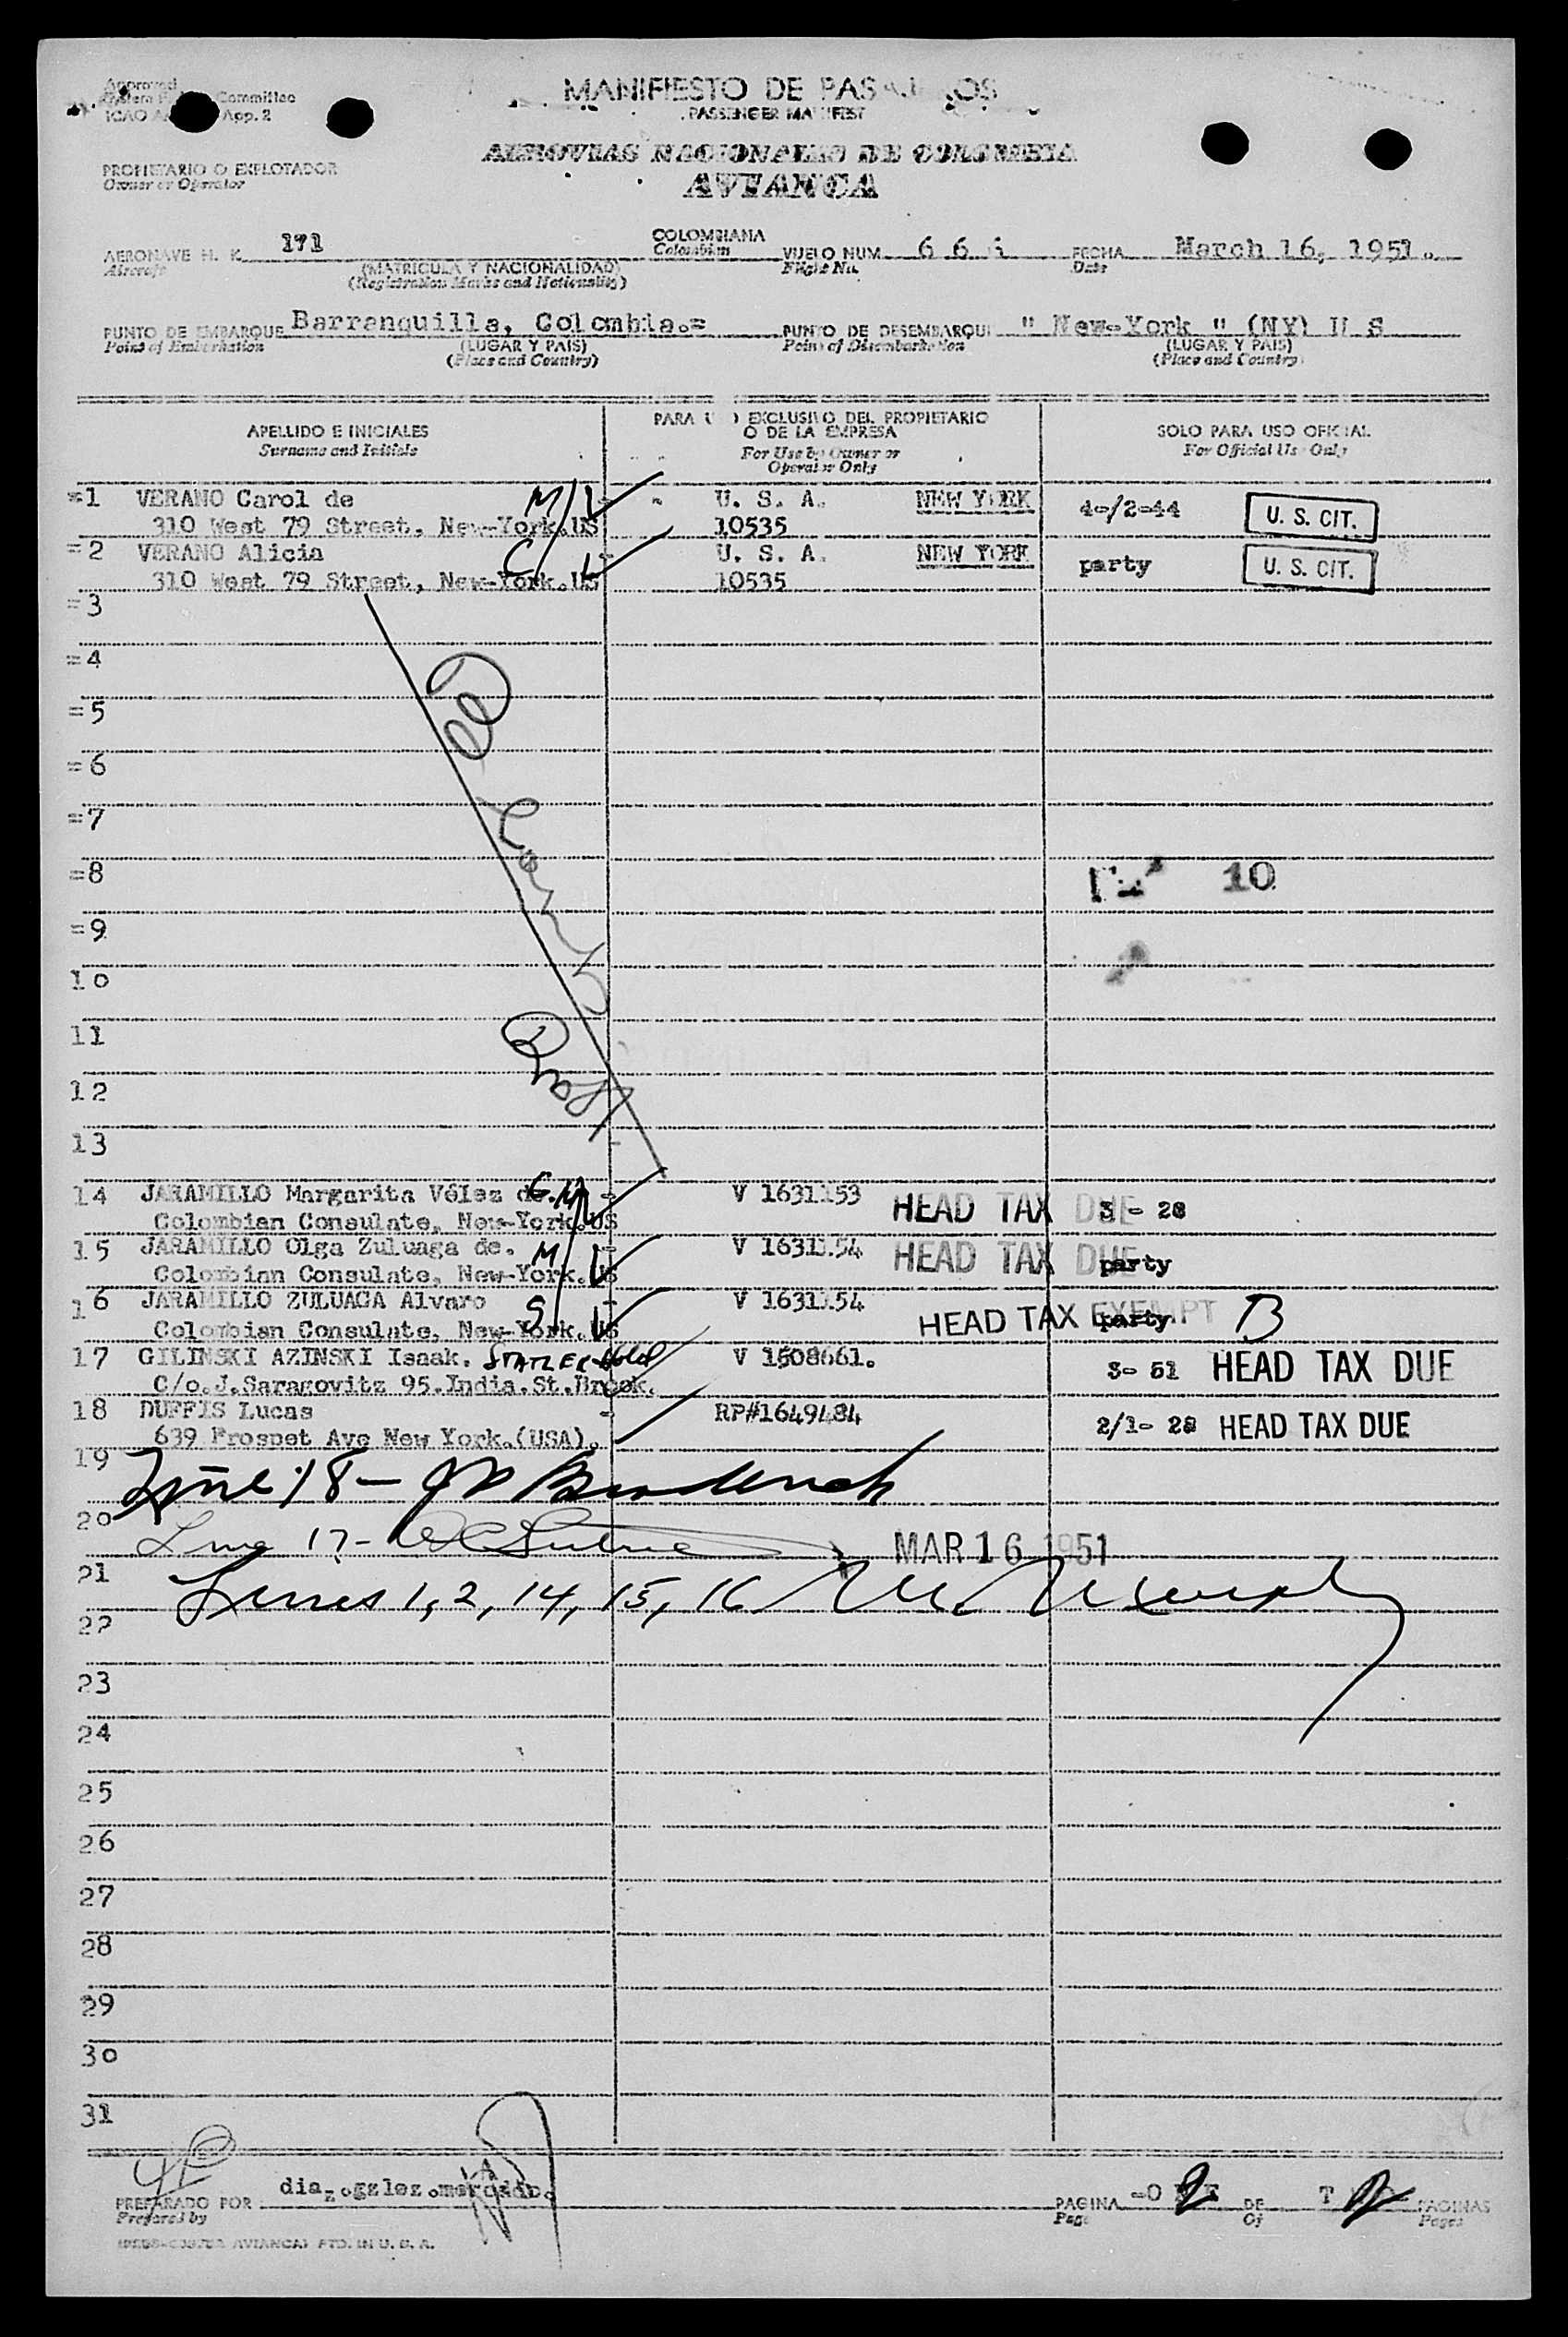 Approved
Committee
ICAO App. 2
MANIFIESTO DE PAS OS
PASSENGER MANIFEST
AEROVIAS NACIONALES DE COLOMBIA
AVIANCA
PROPIETARIO O EXPLOTADOR
Owner or Operator
AERONAVE H. K. 171
Aircraft
(MATRICULA Y NACIONALIDAD)
(Registration Marks and Nationality)
COLOMBIANA
Colombian
VUELO NUM. 6 6
Flight No.
FECHA March 16, 1951.
Date
PUNTO DE EMBARQUE Barranquilla, Colombia.=
Point of Embarkation
(LUGAR Y PAIS)
(Place and Country)
PUNTO DE DESEMBARQUE " New-York " (NY) U S
Point of Disembarkation
(LUGAR Y PAIS)
(Place and Country)
APELLIDO E INICIALES
Surname and Initials
PARA U O EXCLUSIVO DEL PROPIETARIO
O DE LA EMPRESA
For Use by Owner or
Operator Only
SOLO PARA USO OFICIAL
For Official Use Only
=1 VERANO Carol de M/ U. S. A. NEW YORK 4-/2-44 U. S. CIT.
310 West 79 Street, New-York.US 10535
=2 VERANO Alicia C/ U. S. A. NEW YORK party U. S. CIT.
310 West 79 Street, New-York.US 10535
=3
=4
=5
=6
=7
=8 10
=9
10
11
12
13
14 JARAMILLO Margarita Vélez de. V 1631153 HEAD TAX DUE 3 - 28
Colombian Consulate, New-York.US
15 JARAMILLO Olga Zuluaga de. M V 1631154 HEAD TAX DUE party
Colombian Consulate, New-York.US
16 JARAMILLO ZULUAGA Alvaro S V 1631154 HEAD TAX EXEMPT party B
Colombian Consulate, New-York.US
17 GILINSKI AZINSKI Isaak. STATLER Hotel V 1508661. 3- 51 HEAD TAX DUE
C/o.J.Saragovitz 95.India.St.Brook.
18 DUFFIS Lucas RP#1649484 2/1- 28 HEAD TAX DUE
639 Prospet Ave New York.(USA).
19
Line 18 -
20
Line 17 - MAR 16 1951
21
Lines 1, 2, 14, 15, 16 M. Murphy
22
23
24
25
26
27
28
29
30
31
PREPARADO POR
Prepared by
PAGINA 2 DE 2 PAGINAS
Page Of Pages
AVIANCA) PTD. IN U. S. A.